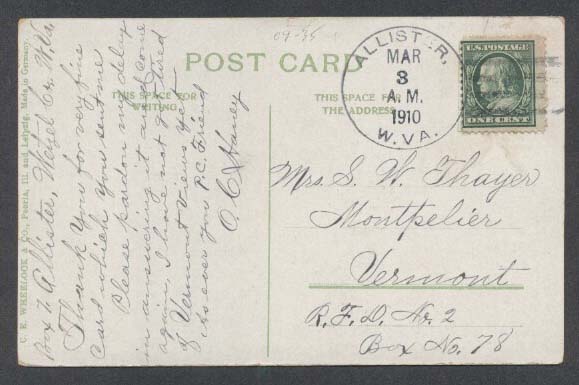 04-35
POST CARD
THIS SPACE FOR
WRITING.
THIS SPACE FOR
THE ADDRESS.
ALLISTER,
MAR
3
A.M.
1910
W. VA.
U.S. POSTAGE
ONE CENT
C. E. WHEELOCK & CO., Peoria, Ill. and Leipzig, Made in Germany
Box 7, Allister, Wetzel Co. W.Va.
Thank you for very fine
card which you sent me
Please pardon my delay
in answering it and come
again. I have not got tired
of Vermont Views yet.
As ever you P.C. Friend
O. C. Haney
Mrs. S. W. Thayer
Montpelier
Vermont
R.F.D. Nr. 2
Box No. 78